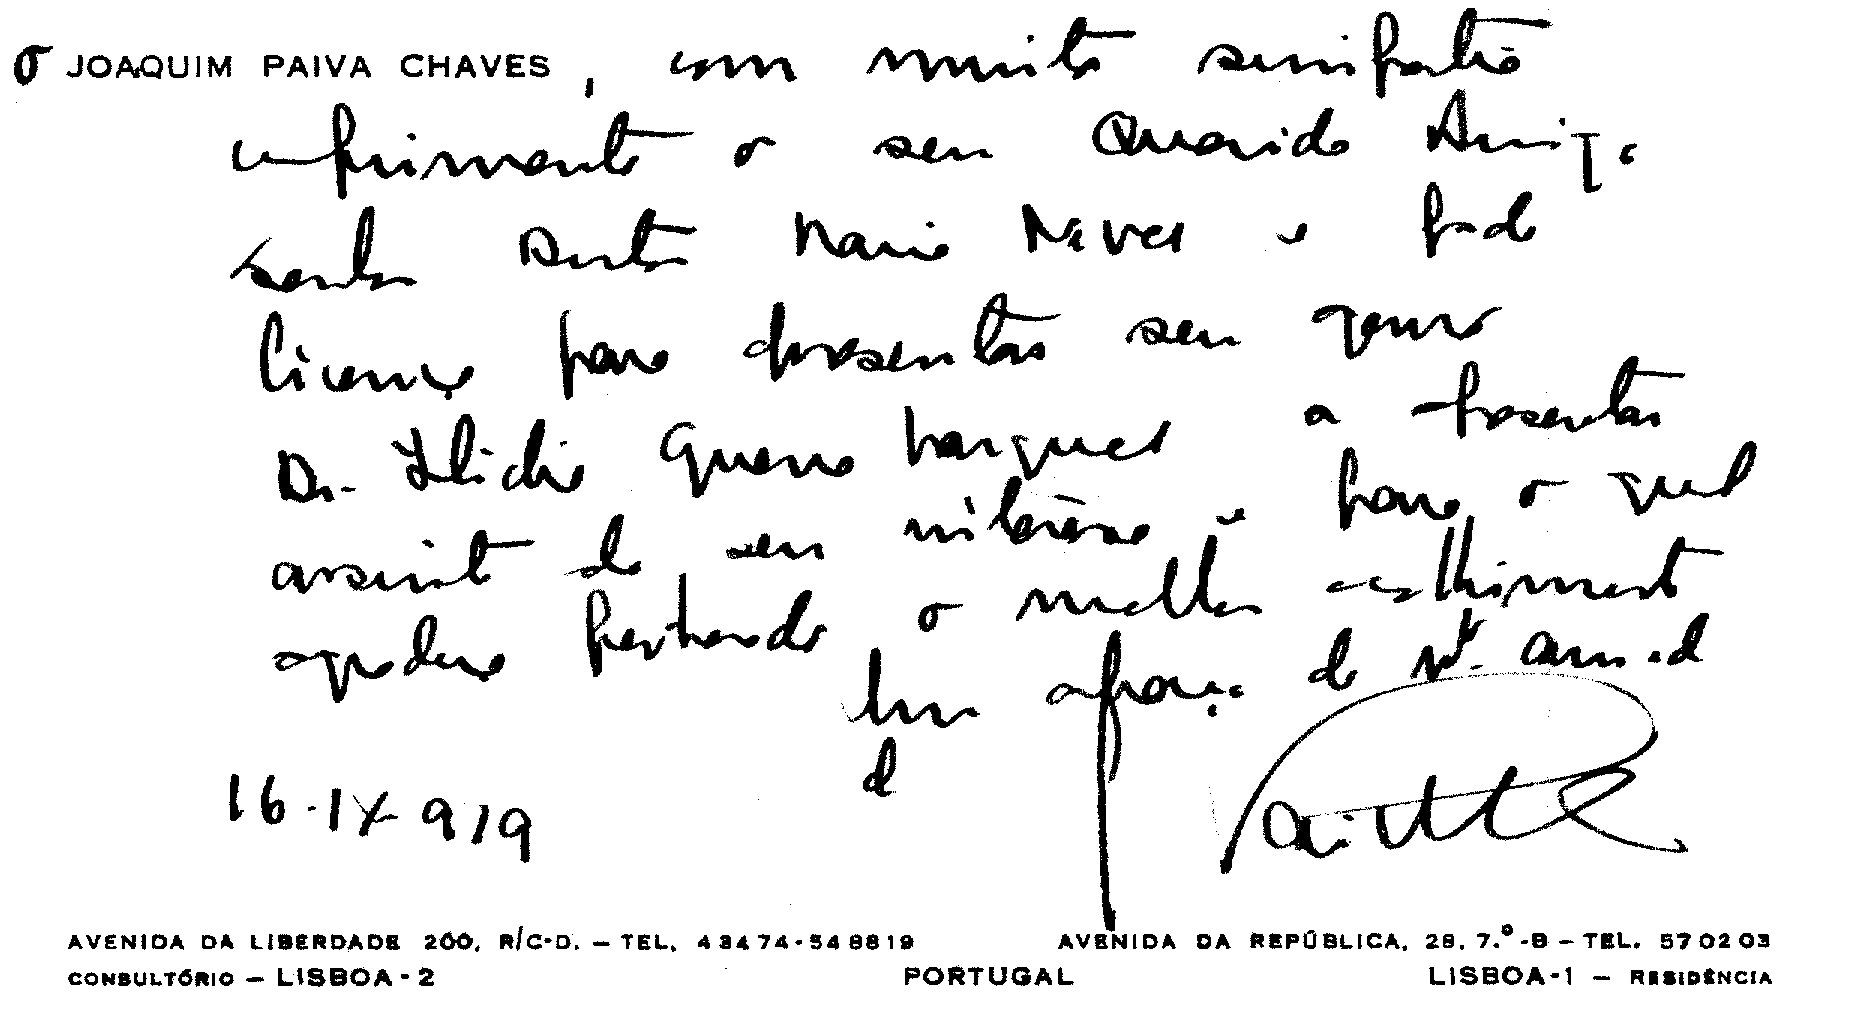 o JOAQUIM PAIVA CHAVES, com muita simpatia
cumprimenta o seu Querido Amigo
Senhor Doutor Mario Neves e pede
licença para apresentar seu genro
Dr. Ilidio Guerra Marques a apresentar
assunto do seu interesse e para o qual
agradece penhorado o melhor acolhimento
Um abraço do mt. am.
16-IX-979
AVENIDA DA LIBERDADE 200, R/C-D. – TEL. 43474-548819
AVENIDA DA REPÚBLICA, 28, 7.º-B – TEL. 570203
CONSULTÓRIO – LISBOA-2
PORTUGAL
LISBOA-1 – RESIDÊNCIA